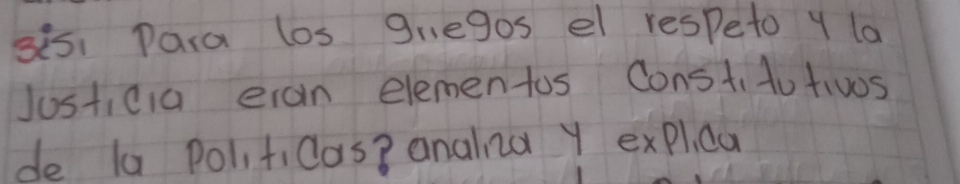 si, Para los griegos el respeto y la
Justicia eran elementos Constitutivos
de la Politicas? analiza y explica